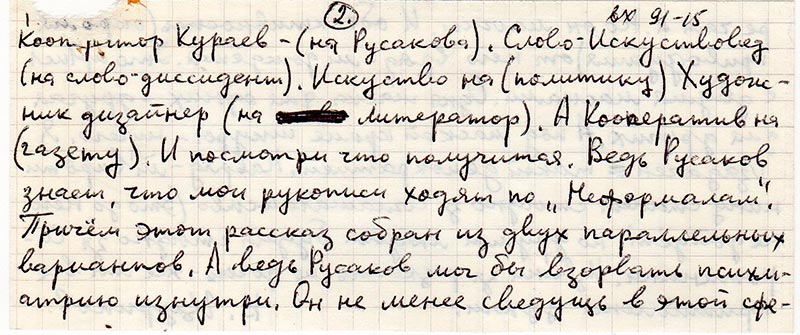 2. вх 91-15
Кооператор Кураев - (на Русакова). Слово-Искуствовед
(на слово-диссидент). Искуство на (политику) Худож-
ник дизайнер (на литератор). А Кооператив на
(газету). И посмотри что получится. Ведь Русаков
знает, что мои рукописи ходят по „Неформалам".
Причём этот рассказ собран из двух параллельных
вариантов. А ведь Русаков мог бы взорвать психи-
атрию изнутри. Он не менее сведущь в этой сфе-